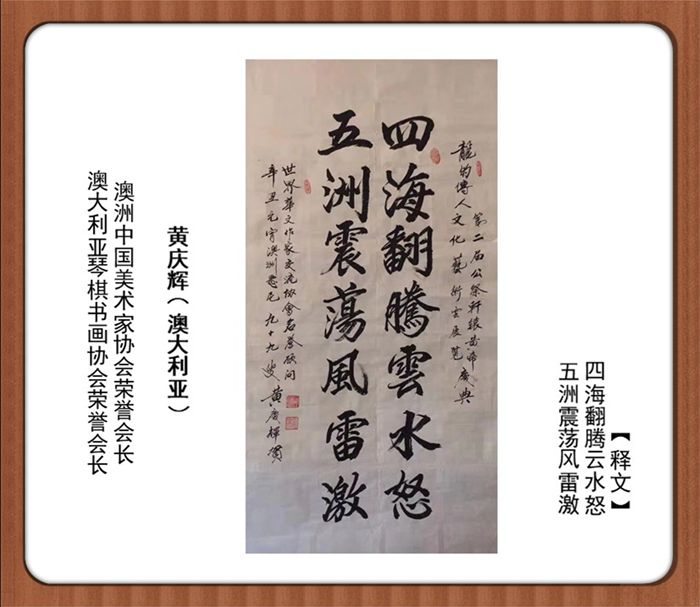 【释文】
四海翻腾云水怒
五洲震荡风雷激
第二届公祭轩辕黄帝庆典
龍的傳人文化藝術云展覽
四海翻騰雲水怒
五洲震蕩風雷激
世界華文作家交流協會名譽顧問
辛丑元宵澳洲悉尼九十九叟黄慶輝賀
黄庆辉（澳大利亚）
澳洲中国美术家协会荣誉会长
澳大利亚琴棋书画协会荣誉会长